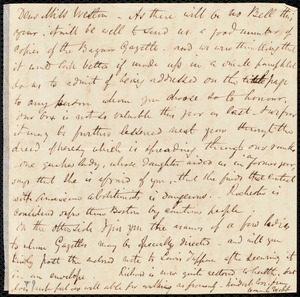 Dear Miss Weston - As there will be no Bell this
year, it will be well to send us a good number of
copies of the Bazaar Gazette - and we were thinking that
it would look better if made up in a small pamphlet
so as to admit of being addressed on the title page
to any person whom you choose so to honour.
Our box is not so valuable this year as last. I expect
it may be further lessened next year through the
dread of heresy which is spreading through our ranks
- one quaker lady, whose Daughter aided us in a former year
says that she is afraid of you, - that she finds that contact
with American abolitionists is dangerous. Rochester is
considered safer than Boston by cautious people.
On the other side I give you the names of a few ladies
to whom Gazettes may be specially directed - and will you
kindly post the enclosed note to Lewis Tappan after securing it
in an envelope. Richard is now quite restored to health, but